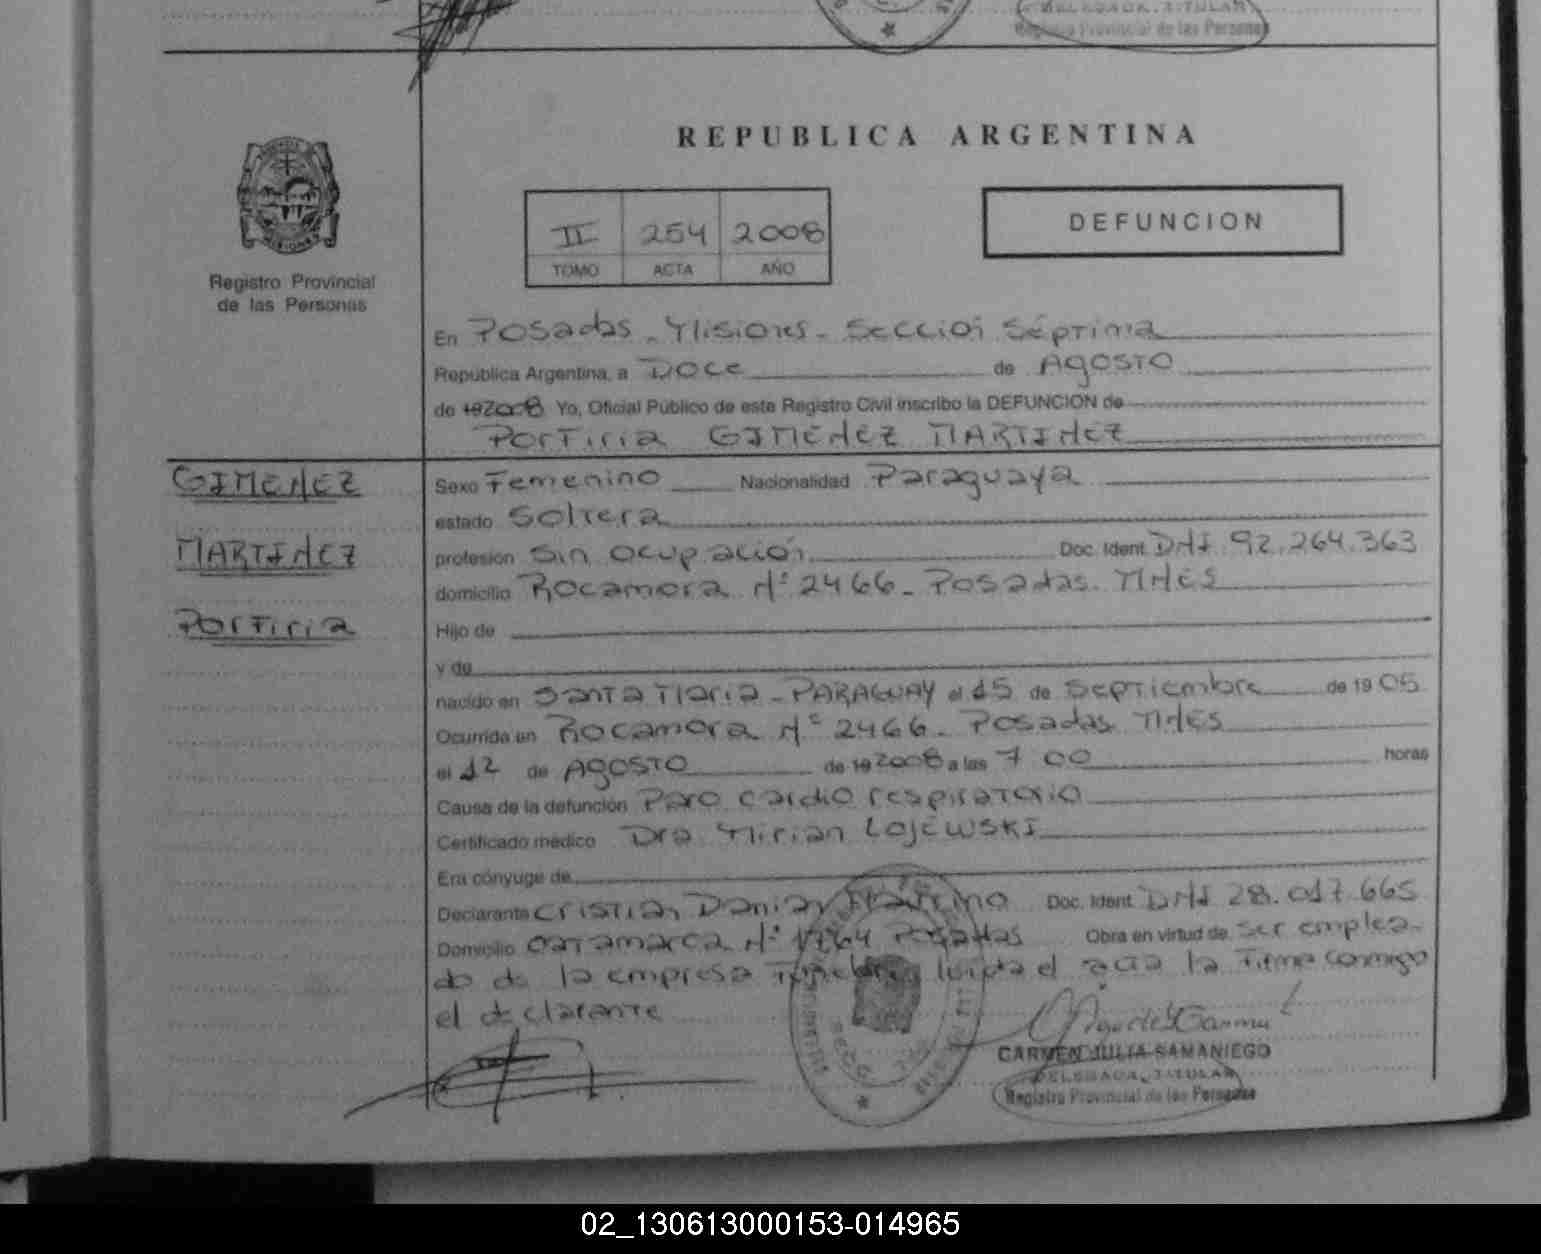 DELEGADA TITULAR
Registro Provincial de las Personas
REPUBLICA ARGENTINA
II 254 2008
TOMO ACTA AÑO
DEFUNCION
Registro Provincial
de las Personas
En Posadas - Misiones - Sección Séptima
República Argentina, a Doce de Agosto
de 19 2008 Yo, Oficial Público de este Registro Civil inscribo la DEFUNCION de
Porfiria GIMÉNEZ MARTINEZ
GIMENEZ
MARTINEZ
Porfiria
Sexo Femenino Nacionalidad Paraguaya
estado Soltera
profesión Sin ocupación Doc. Ident. DNI 92.264.363
domicilio Rocamora Nº 2466 - Posadas. MNES
Hijo de
y de
nacido en Santa Maria - PARAGUAY el 15 de Septiembre de 19 05
Ocurrida en Rocamora Nº 2466 - Posadas MNES
el 12 de Agosto de 19 2008 a las 7 00 horas
Causa de la defunción Paro cardio respiratorio
Certificado médico Dra. Mirian LOJEWSKI
Era cónyuge de
Declarante Cristian Damian Doc. Ident. DNI 28.017.665
Domicilio Catamarca Nº 1764 Posadas Obra en virtud de ser emplea-
do de la empresa fúnebre leída el acta la firma conmigo
el declarante
CARMEN JULIA SAMANIEGO
DELEGADA TITULAR
Registro Provincial de las Personas
02_130613000153-014965